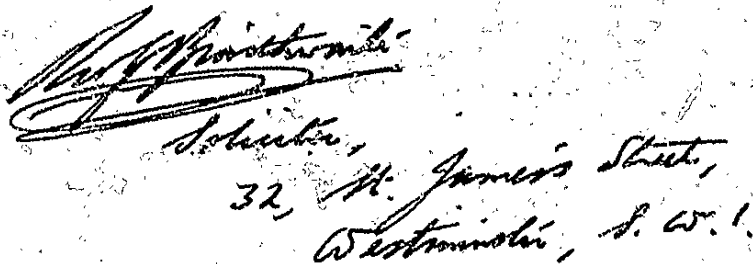 Solicitor,
32, St. James's Street,
Westminster, S.W.1.